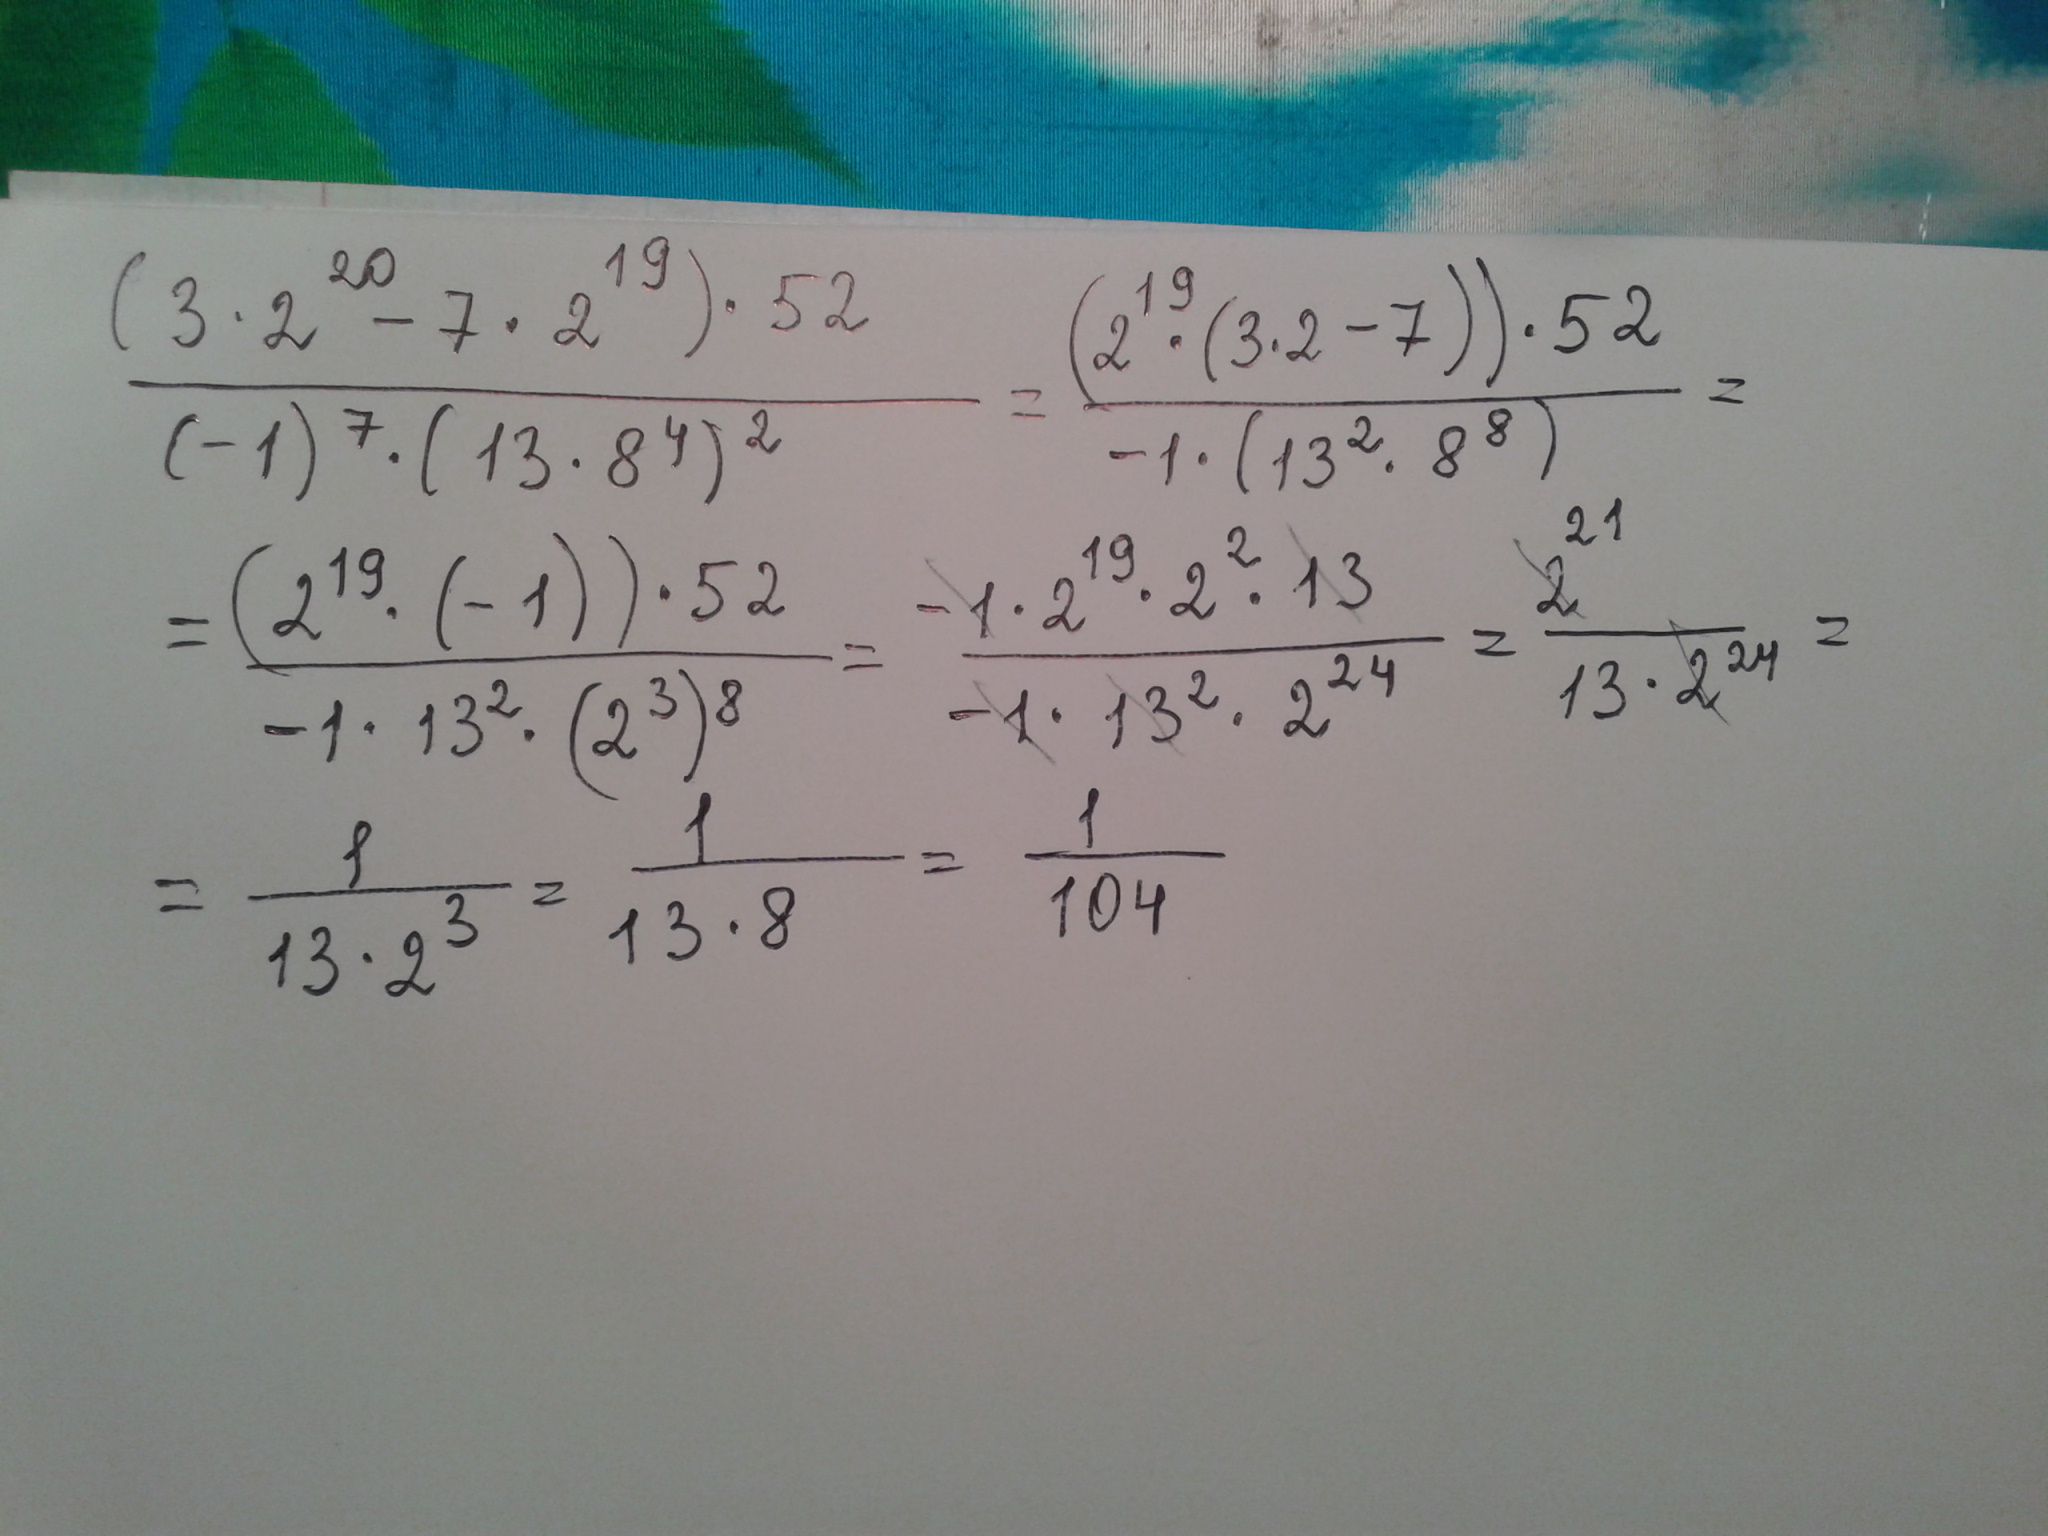 (3·2^20 - 7·2^19)·52 / (-1)^7·(13·8^4)^2 = (2^19·(3·2-7))·52 / -1·(13^2·8^8) =
= (2^19·(-1))·52 / -1·13^2·(2^3)^8 = -1·2^19·2^2·13 / -1·13^2·2^24 = 2^21 / 13·2^24 =
= 1 / 13·2^3 = 1 / 13·8 = 1 / 104